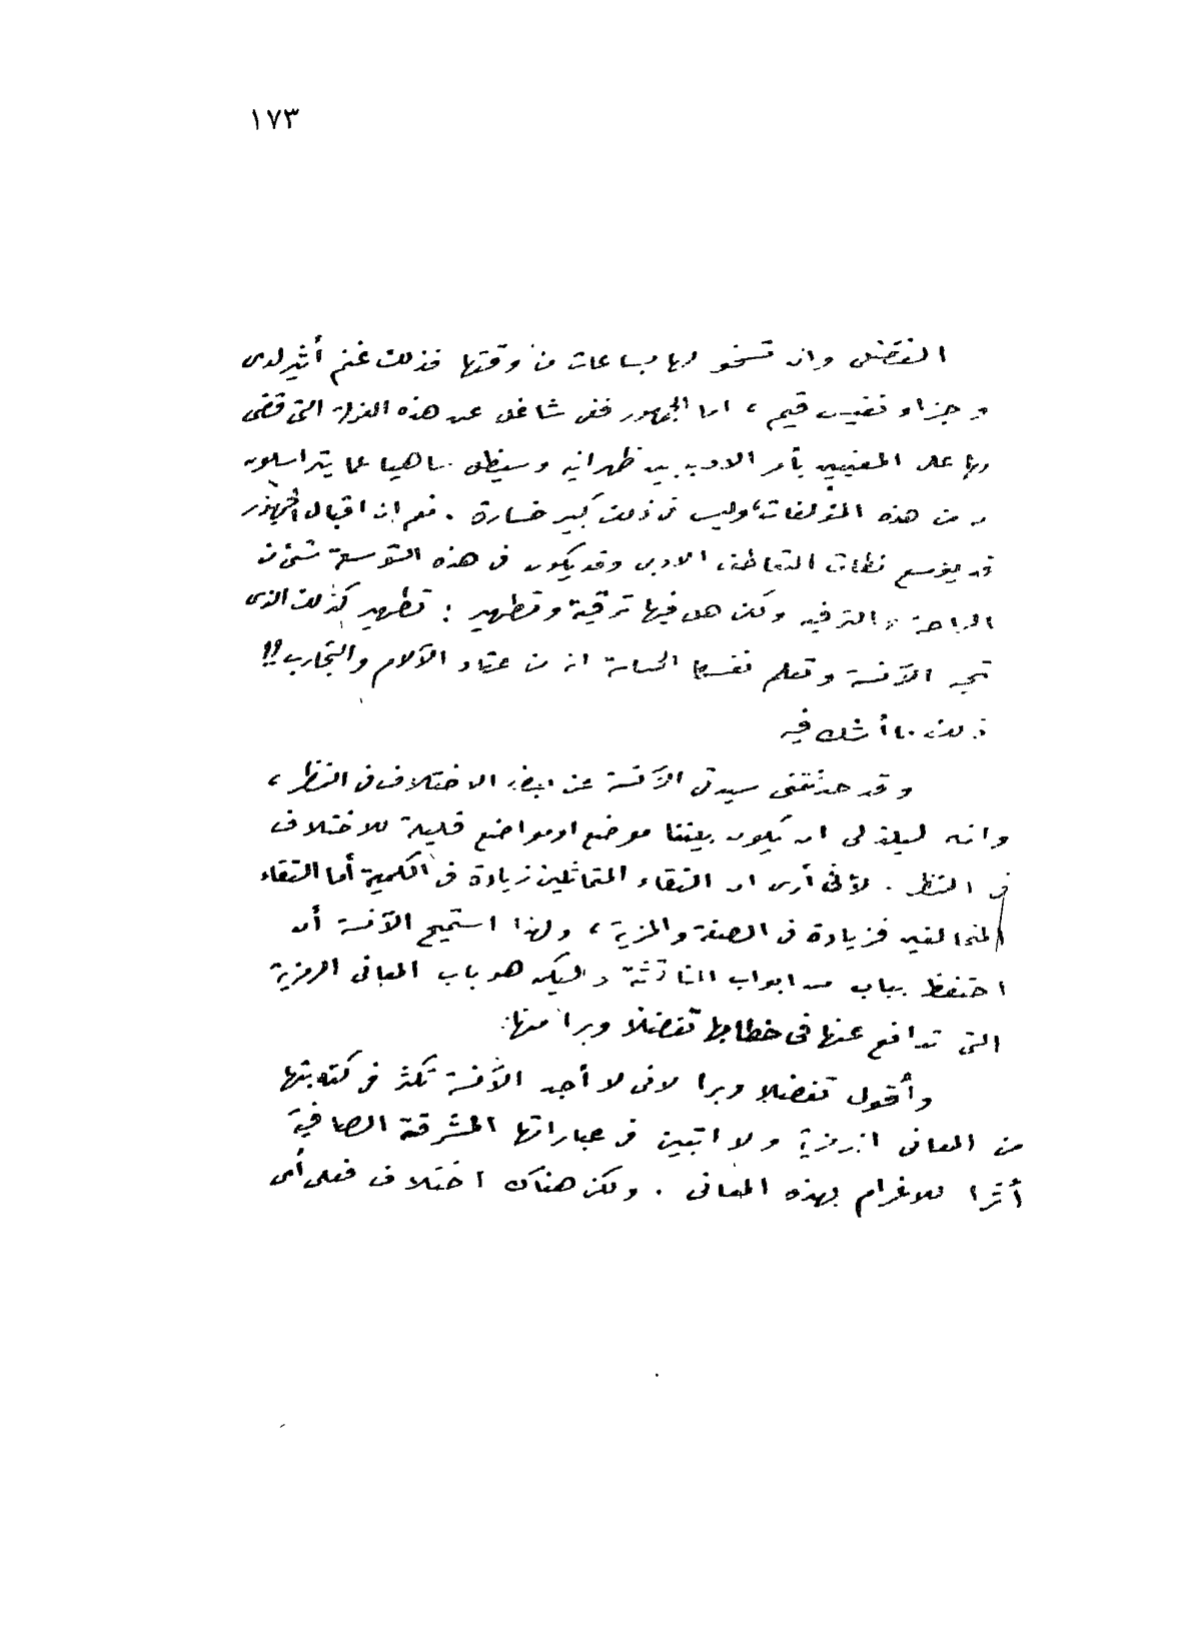 ١٧٣
التفضل وان تسخو لها بساعات من وقتها فذلك غنم أثير لدى
وجزاء نفيس قيم ، اما الجمهور ففى شاغل عن هذه العزلة التى قضى
بها على المعنيين بأمر الادب بين ظهرانيه وسيظل ساهيا عما يتراسلون
به من هذه المؤلفات، وليس فى ذلك كبير خسارة . نعم ان اقبال الجمهور
قد يوسع نطاق التعاطف الادبى وقد يكون فى هذه التوسعة شىء من
الراحة والترفيه ولكن هل فيها ترقية وتطهير : تطهير كذلك الذى
تجده الآنسة وتعلم نفسها الحساسة انه من عتاد الآلام والتجارب !!
ذلك ما أشك فيه
وقد حدثتنى سيدتى الآنسة عن بعض الاختلاف فى النظر ،
وانه ليلذ لى ان يكون بيننا موضع او مواضع قليلة للاختلاف
فى النظر . لأنى أرى ان التقاء المتماثلين زيادة فى الكمية أما التقاء
المتخالفين فزيادة فى الصفة والمزية ، ولهذا استميح الآنسة أن
احتفظ بباب من ابواب المناقشة وليكن هو باب المعانى الرمزية
التى تدافع عنها فى خطابها تفضلا وبرا منها.
وأقول تفضلا وبرا لانى لا أجد الآنسة تكثر فى كتابتها
من المعانى الرمزية ولا اتبين فى عباراتها المشرقة الصافية
أثرا للاغرام بهذه المعانى . ولكن هناك اختلاف فعلى أى